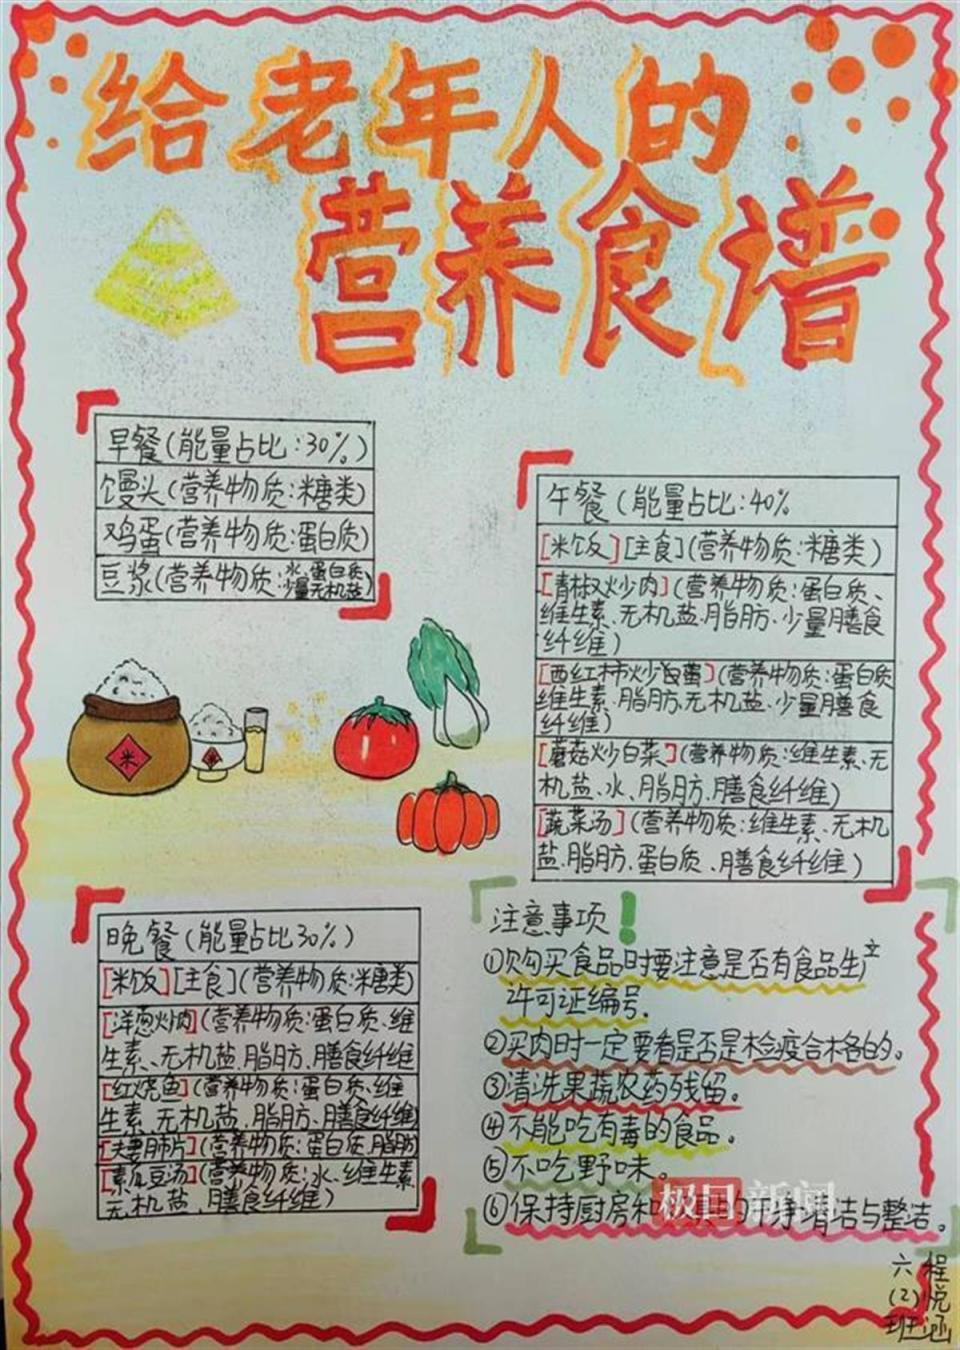 给老年人的
营养食谱
早餐(能量占比:30%)
馒头(营养物质:糖类)
鸡蛋(营养物质:蛋白质)
豆浆(营养物质:水、蛋白质、
少量无机盐)
午餐(能量占比:40%
[米饭][主食](营养物质:糖类)
[青椒炒肉](营养物质:蛋白质、
维生素、无机盐、脂肪、少量膳食
纤维)
[西红柿炒鸡蛋](营养物质:蛋白质
维生素、脂肪、无机盐、少量膳食
纤维)
[蘑菇炒白菜](营养物质:维生素、无
机盐、水、脂肪、膳食纤维)
[蔬菜汤](营养物质:维生素、无机
盐、脂肪、蛋白质、膳食纤维)
米
晚餐(能量占比30%)
[米饭][主食](营养物质:糖类)
[洋葱炒肉](营养物质:蛋白质、维
生素、无机盐、脂肪、膳食纤维
[红烧鱼](营养物质:蛋白质、维
生素、无机盐、脂肪、膳食纤维)
[夫妻肺片](营养物质:蛋白质、脂肪)
[素瓜豆汤](营养物质:水、维生素
无机盐、膳食纤维)
注意事项!
①购买食品时要注意是否有食品生产
许可证编号。
②买肉时一定要看是否是检疫合格的。
③清洗果蔬农药残留。
④不能吃有毒的食品。
⑤不吃野味。
⑥保持厨房和餐具的干净清洁与整洁。
极目新闻
六(2)班
程悦涵